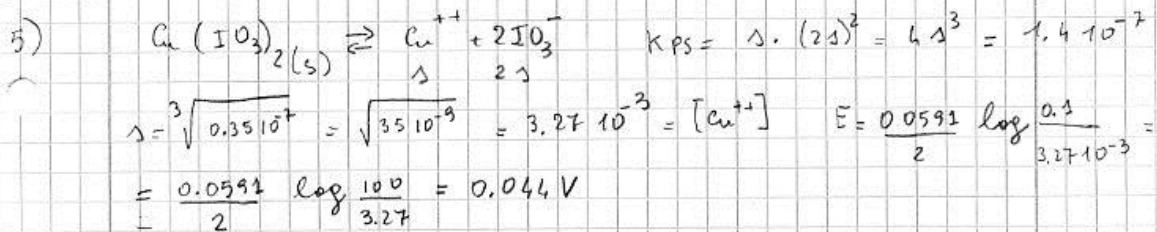 5) Cu (IO3)2(s) ⇄ Cu++ + 2IO3- Kps = s · (2s)² = 4s³ = 1.4 10^-7
s 2s
s = ³√0.35 10^-7 = √35 10^-9 = 3.27 10^-3 = [Cu++] E = 0.0591/2 log 0.1/3.27 10^-3 =
= 0.0591/2 log 100/3.27 = 0.044 V